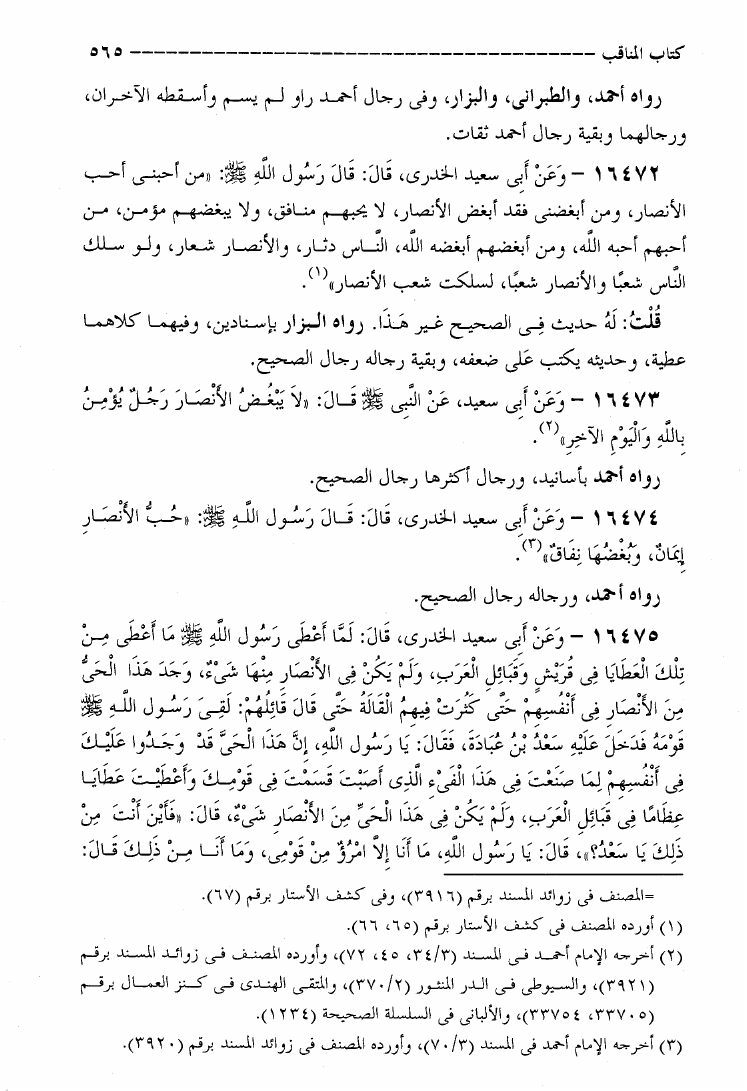 كتاب المناقب ------------------------------------------ ٥٦٥
رواه أحمد، والطبرانى، والبزار، وفى رجال أحمد راو لم يسم وأسقطه الآخران،
ورجالهما وبقية رجال أحمد ثقات.
١٦٤٧٢ – وَعَنْ أَبِى سعيد الخدرى، قَالَ: قَالَ رَسُول اللَّهِ ﷺ: «من أحبنى أحب
الأنصار، ومن أبغضنى فقد أبغض الأنصار، لا يحبهم منافق، ولا يبغضهم مؤمن، من
أحبهم أحبه اللَّه، ومن أبغضهم أبغضه اللَّه، النَّاس دثار، والأنصار شعار، ولو سلك
النَّاس شعبًا والأنصار شعبًا، لسلكت شعب الأنصار»(١).
قُلْتُ: لَهُ حديث فِى الصحيح غير هَذَا. رواه البزار بإسنادين، وفيهما كلاهما
عطية، وحديثه يكتب عَلى ضعفه، وبقية رجاله رجال الصحيح.
١٦٤٧٣ – وَعَنْ أَبِى سعيد، عَنْ النَّبِى ﷺ قَالَ: «لاَ يَبْغُضُ الأَنْصَارَ رَجُلٌ يُؤْمِنُ
بِاللَّهِ وَالْيَوْمِ الآخِرِ»(٢).
رواه أحمد بأسانيد، ورجال أكثرها رجال الصحيح.
١٦٤٧٤ – وَعَنْ أَبِى سعيد الخدرى، قَالَ: قَالَ رَسُول اللَّهِ ﷺ: «حُبُّ الأَنْصَارِ
إِيمَانٌ، وَبُغْضُهَا نِفَاقٌ»(٣).
رواه أحمد، ورجاله رجال الصحيح.
١٦٤٧٥ – وَعَنْ أَبِى سعيد الخدرى، قَالَ: لَمَّا أَعْطَى رَسُول اللَّهِ ﷺ مَا أَعْطَى مِنْ
تِلْكَ الْعَطَايَا فِى قُرَيْشٍ وَقَبَائِلِ الْعَرَبِ، وَلَمْ يَكُنْ فِى الأَنْصَارِ مِنْهَا شَىْءٌ، وَجَدَ هَذَا الْحَىُّ
مِنَ الأَنْصَارِ فِى أَنْفُسِهِمْ حَتَّى كَثُرَتْ فِيهِمُ الْقَالَةُ حَتَّى قَالَ قَائِلُهُمْ: لَقِىَ رَسُول اللَّهِ ﷺ
قَوْمَهُ فَدَخَلَ عَلَيْهِ سَعْدُ بْنُ عُبَادَةَ، فَقَالَ: يَا رَسُول اللَّهِ، إِنَّ هَذَا الْحَىَّ قَدْ وَجَدُوا عَلَيْكَ
فِى أَنْفُسِهِمْ لِمَا صَنَعْتَ فِى هَذَا الْفَىْءِ الَّذِى أَصَبْتَ قَسَمْتَ فِى قَوْمِكَ وَأَعْطَيْتَ عَطَايَا
عِظَامًا فِى قَبَائِلِ الْعَرَبِ، وَلَمْ يَكُنْ فِى هَذَا الْحَىِّ مِنَ الأَنْصَارِ شَىْءٌ، قَالَ: «فَأَيْنَ أَنْتَ مِنْ
ذَلِكَ يَا سَعْدُ؟»، قَالَ: يَا رَسُول اللَّهِ، مَا أَنَا إِلاَّ امْرُؤٌ مِنْ قَوْمِى، وَمَا أَنَا مِنْ ذَلِكَ قَالَ:
=المصنف فى زوائد المسند برقم (٣٩١٦)، وفى كشف الأستار برقم (٦٧).
(١) أورده المصنف فى كشف الأستار برقم (٦٥، ٦٦).
(٢) أخرجه الإمام أحمد فى المسند (٣٤/٣، ٤٥، ٧٢)، وأورده المصنف فى زوائد المسند برقم
(٣٩٢١)، والسيوطى فى الدر المنثور (٣٧٠/٢)، والمتقى الهندى فى كنز العمال برقم
(٣٣٧٠٥، ٣٣٧٥٤)، والألبانى فى السلسلة الصحيحة (١٢٣٤).
(٣) أخرجه الإمام أحمد فى المسند (٧٠/٣)، وأورده المصنف فى زوائد المسند برقم (٣٩٢٠).